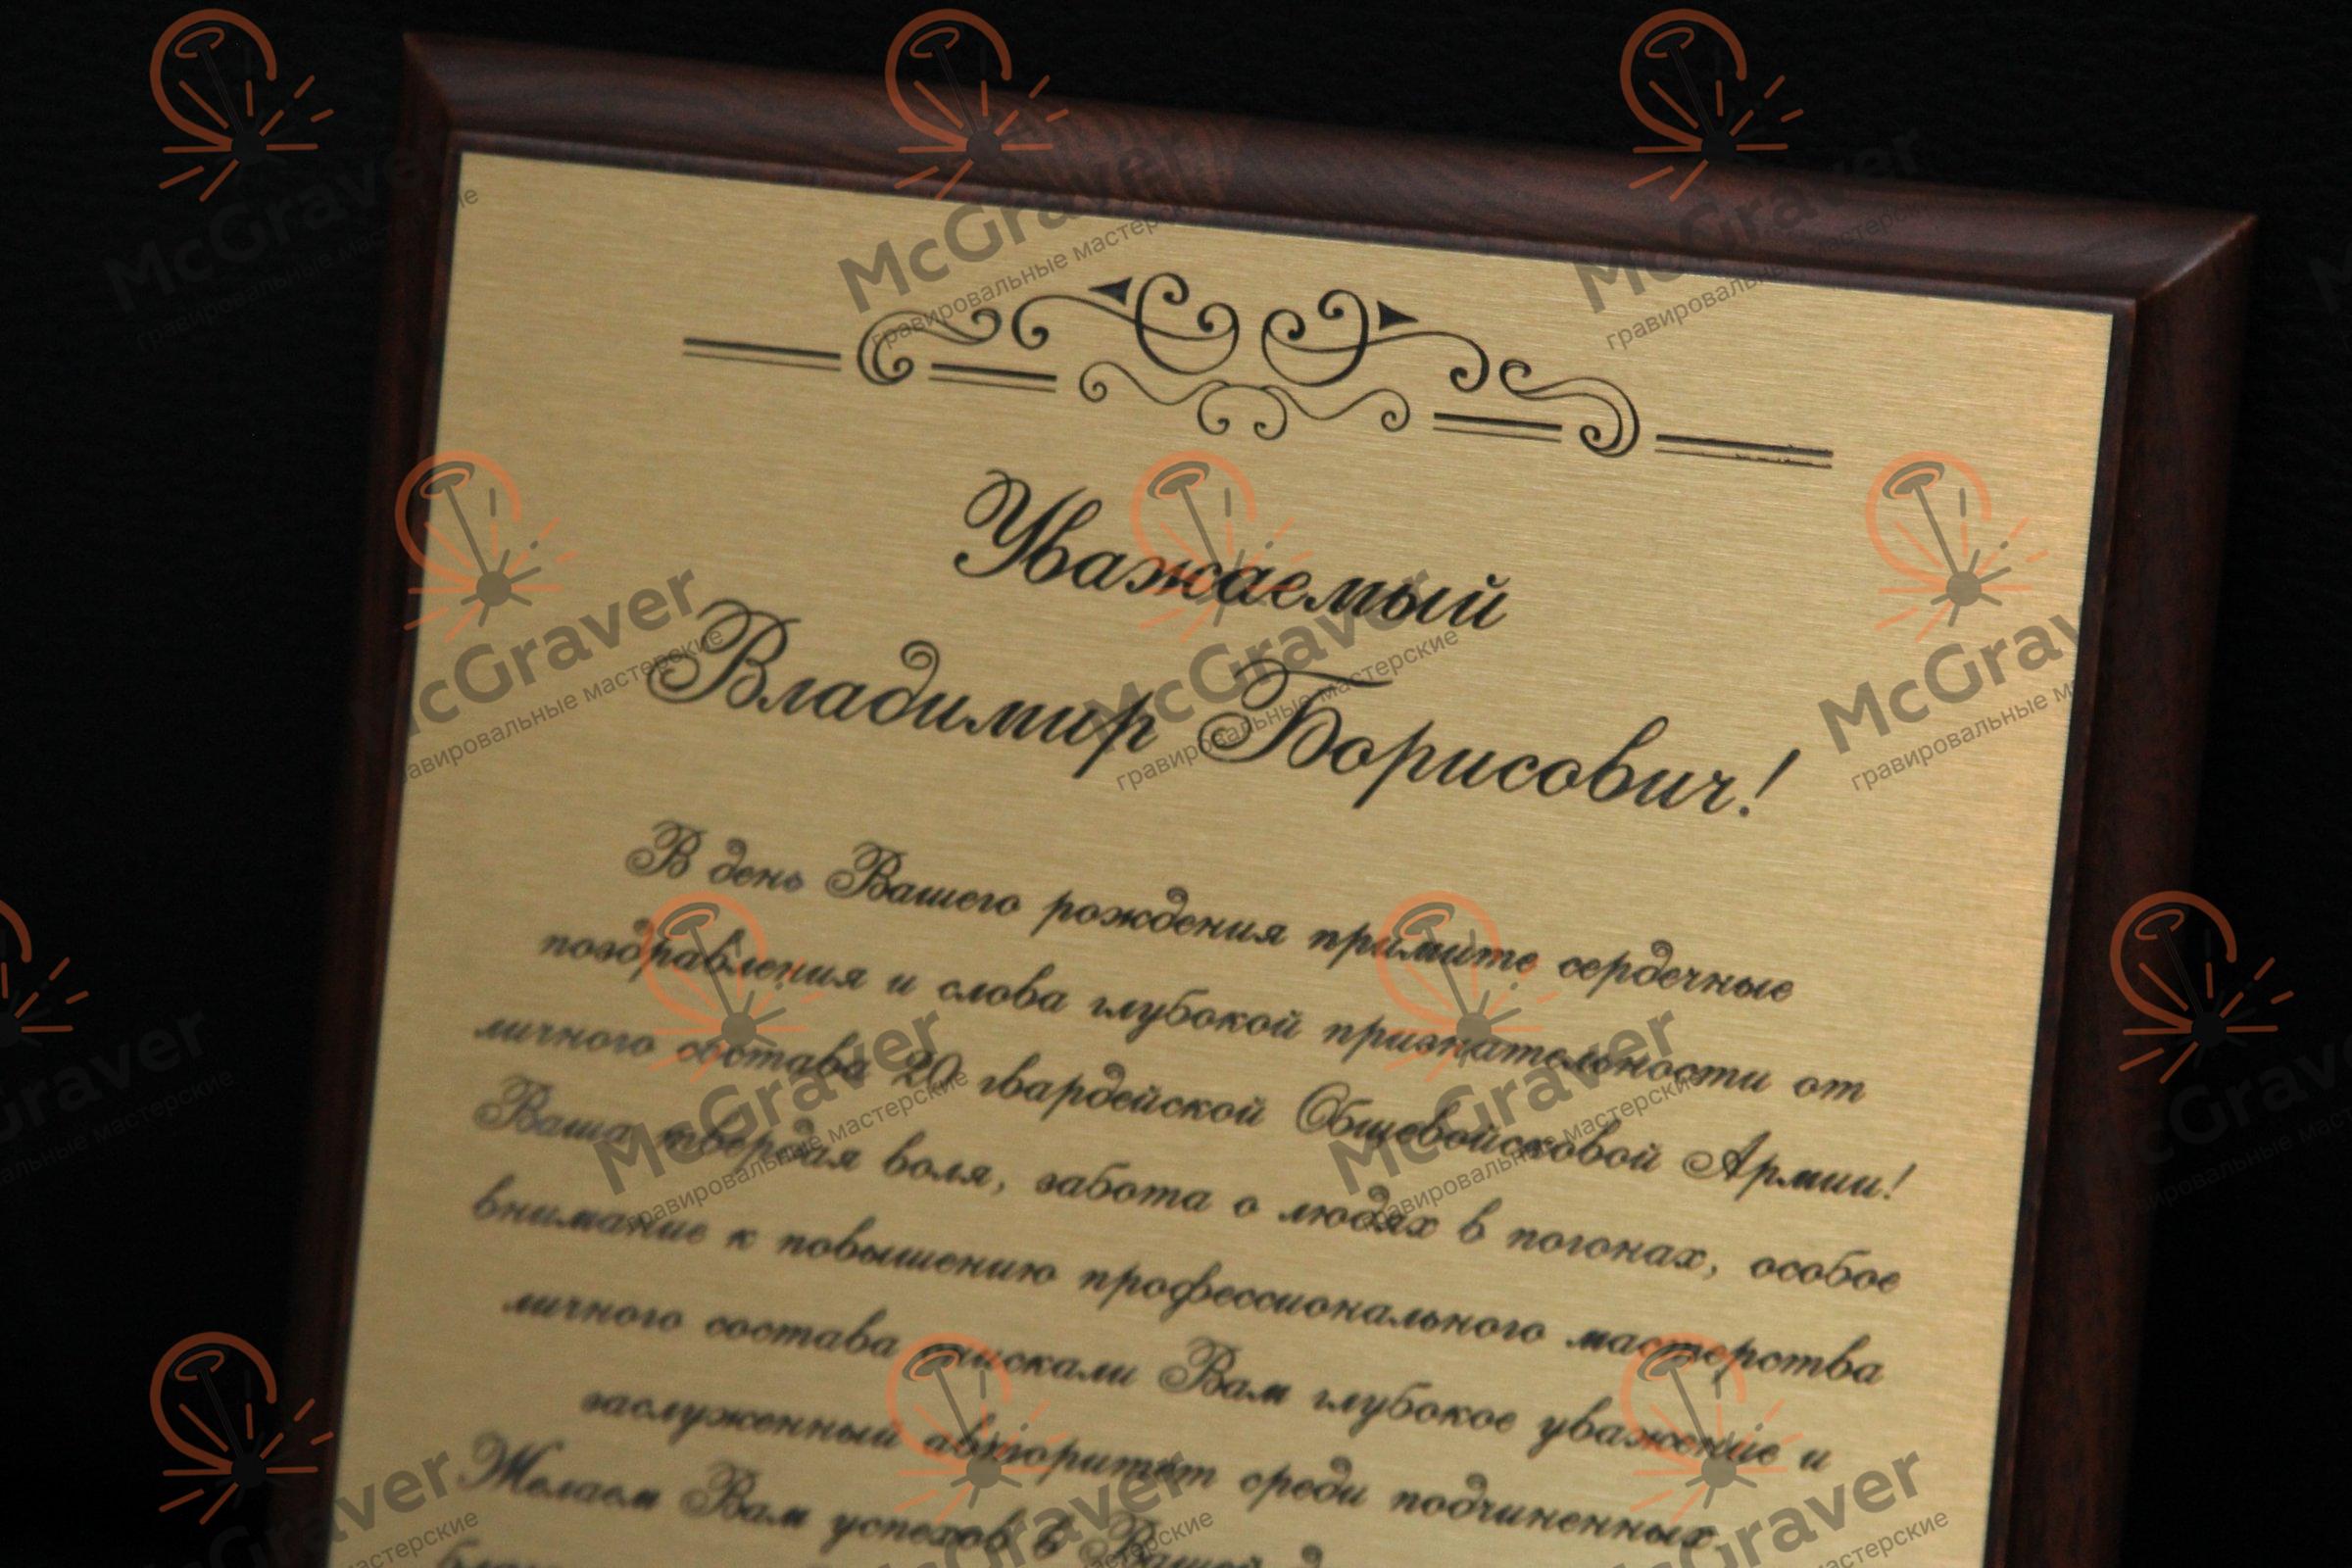 Уважаемый
Владимир Борисович!
В день Вашего рождения примите сердечные
поздравления и слова глубокой признательности от
личного состава 20 гвардейской Общевойсковой Армии!
Ваша твердая воля, забота о людях в погонах, особое
внимание к повышению профессионального мастерства
личного состава снискали Вам глубокое уважение и
заслуженный авторитет среди подчиненных.
Желаем Вам успехов в Вашей
McGraver
гравировальные мастерские